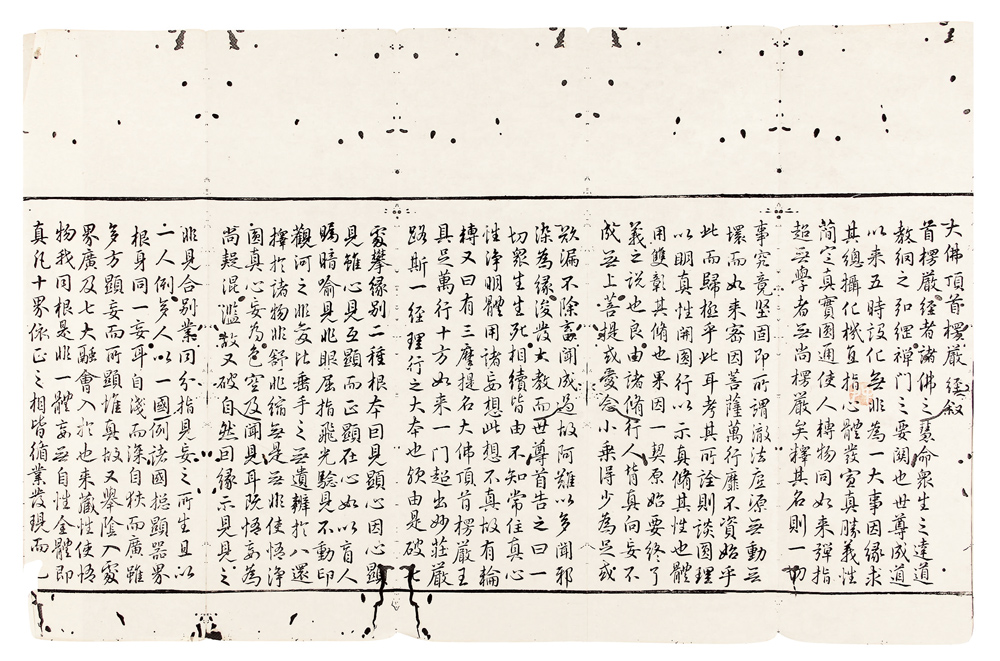 大佛頂首楞嚴經叙
首楞嚴経者諸佛之慧命衆生之達道
教網之弘綱禅門之要關也世尊成道
以来五時設化無非為一大事因緣求
其總攝化機直指心體發宣真勝義性
簡定真實圓通使人轉物同如来彈指
超無學者無尚楞嚴矣釋其名則一切
事究竟堅固即所謂澈法底源無動無
壞而如来密因菩薩萬行靡不資始乎
此而歸極乎此耳考其所詮則談圓理
以明真性開圓行以示真脩其性也體
用雙彰其脩也果因一契原始要終了
義之說也良由諸脩行人皆真向妄不
成無上菩提或愛念小乘得少為足或
欲漏不除畜聞成過故阿難以多聞邪
染為緣後發大教而世尊首告之曰一
切衆生生死相續皆由不知常住真心
性浄明體用諸妄想此想不真故有輪
轉又曰有三摩提名大佛頂首楞嚴王
具足萬行十方如来一門超出妙莊嚴
路斯一経理行之大本也欲由是破七
處攀緣別二種根本因見顯心因心顯
見雖心見互顯而正顯在心如以盲人
矚暗喻見非眼屈指飛光驗見不動印
觀河之非變比垂手之無遺辯於八還
擇於諸物非舒非縮無是無非使悟浄
圓真心妄為色空及聞見耳既悟妄為
尚疑混濫故又破自然因緣示見見之
非見合別業同分指見妄之所生且以
二人例多人以一國例諸國揔顯器界
根身同一妄耳自淺而深自狹而廣雖
多方顯妄而所顯堆真故又舉陰入處
界廣及七大融會入於如来藏性使悟
物我同根是非一體妄無自性全體即
真凡十界依正之相皆循業發現而